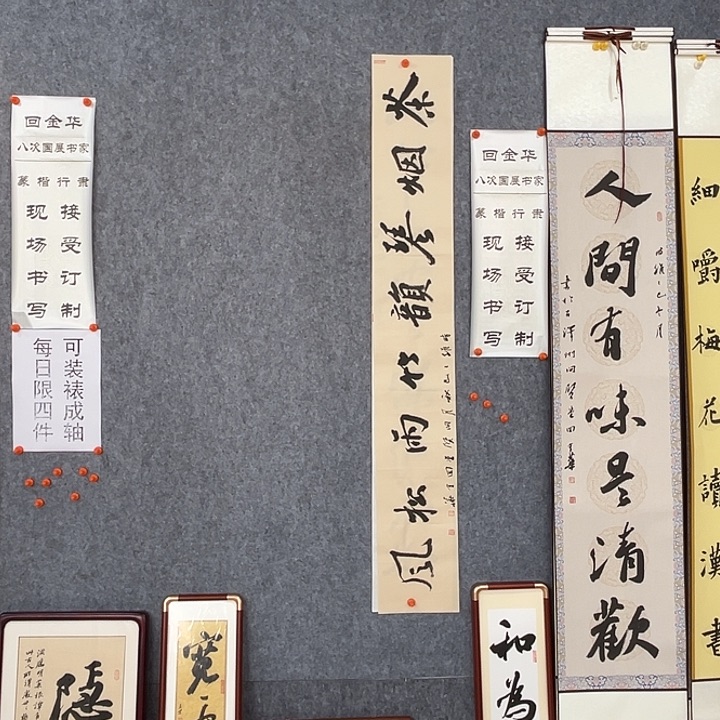 回金华
八次国展书家
篆楷行隶
接受订制
现场书写
可装裱成轴
每日限四件
茶烟琴韻竹雨松风
回金华
八次国展书家
篆楷行隶
接受订制
现场书写
人間有味是清歡
細嚼梅花讀漢書
隱
寬
和為